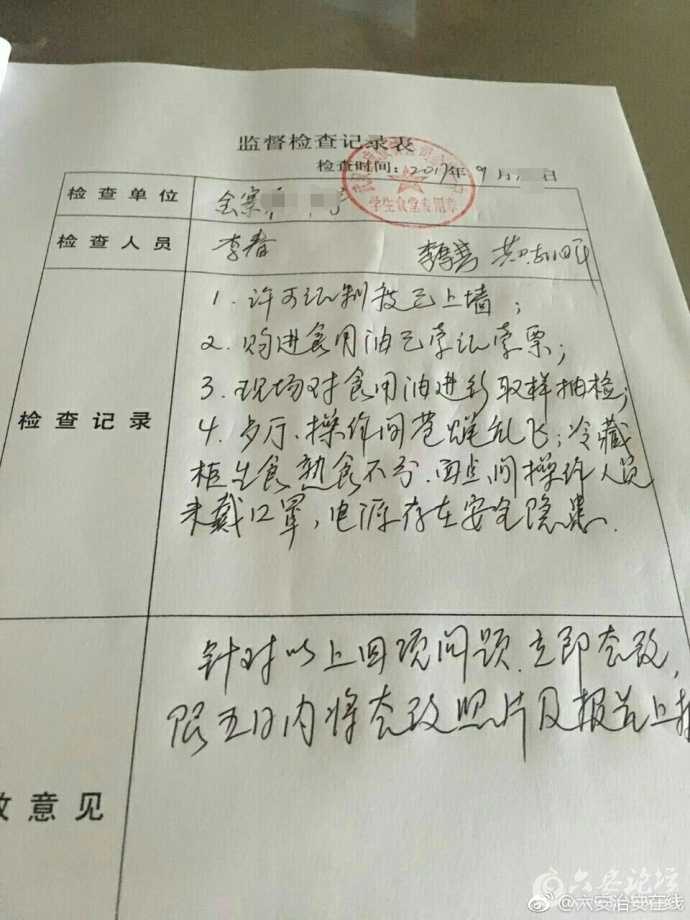 监督检查记录表
检查时间：2017年9月 日
学生食堂专用章
检查单位
金寨
检查人员
李春
检查记录
1.许可证制度已上墙；
2.购进食用油已索证索票；
3.现场对食用油进行取样抽检；
4.歺厅、操作间苍蝇乱飞；冷藏
柜生食熟食不分.面点间操作人员
未戴口罩，电源存在安全隐患.
针对以上四项问题.立即整改，
限五日内将整改照片及报告上报
改意见
六安论坛
@六安治安在线